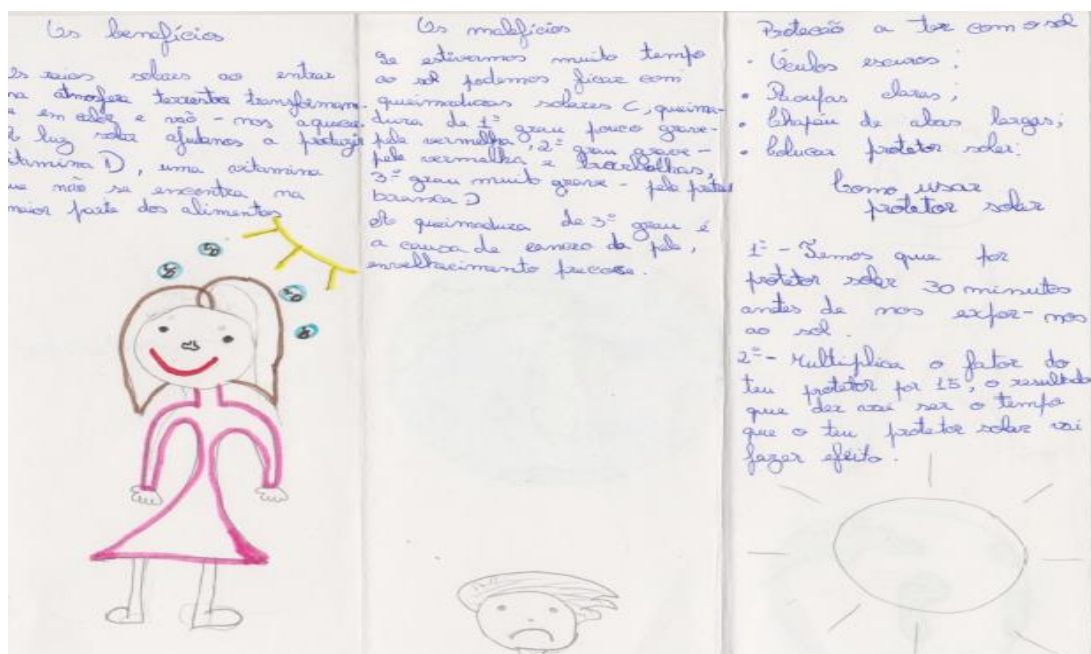 Os benefícios
Os raios solares ao entrar
na atmosfera terrestre transformam-
em calor e vão-nos aquece
A luz solar ajudanos a produzir
vitamina D, uma vitamina
que não se encontra na
maior parte dos alimentos
Os malefícios
Se estivermos muito tempo
ao sol podemos ficar com
queimaduras solares (, queima-
dura de 1º grau pouco grave-
pele vermelha, 2º grau grave-
pele vermelha e borbolhas,
3º grau muito grave - pele preta
branca)
A queimadura de 3º grau é
a causa de cancro da pele,
envelhecimento precose.
Proteção a ter com o sol
• Óculos escuros;
• Roupas claras;
• Chapéu de abas largas;
• Colucar protetor soler.
Como usar
protetor solar
1º - Temos que por
protetor solar 30 minutos
antes de nos expor-nos
ao sol.
2º - Multiplica o fator do
teu protetor por 15, o resultado
que der vai ser o tempo
que o teu protetor solar vai
fazer efeito.